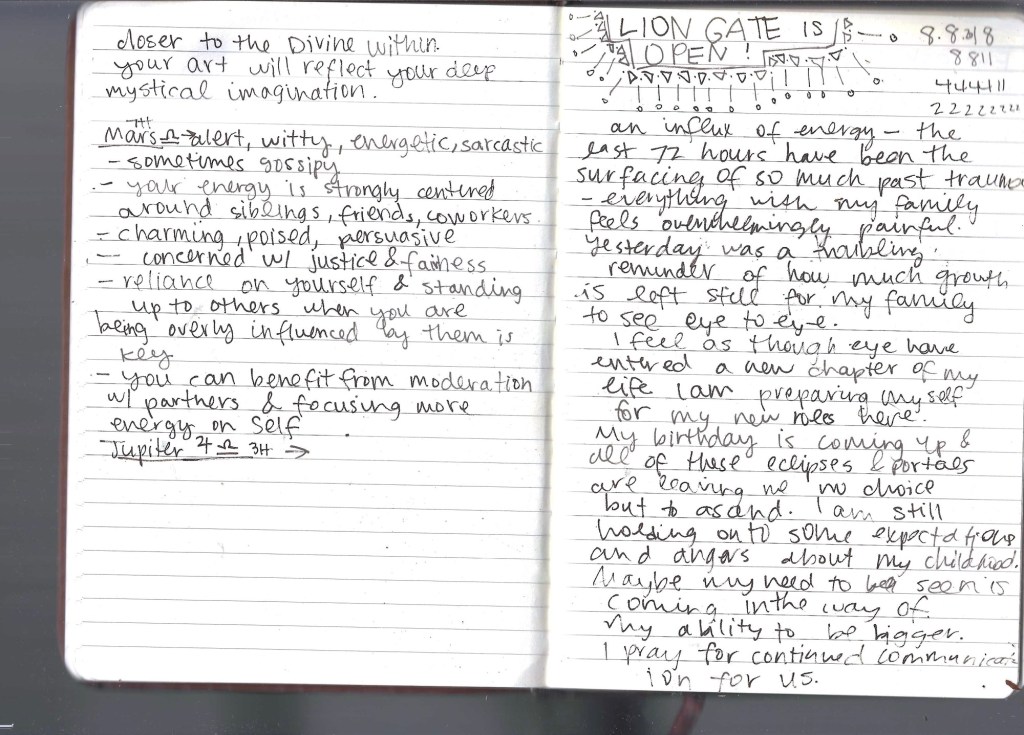 closer to the Divine within.
your art will reflect your deep
mystical imagination.
7H
Mars ♎ → alert, witty, energetic, sarcastic
- sometimes gossipy
- your energy is strongly centered
around siblings, friends, coworkers.
- charming, poised, persuasive
- concerned w/ justice & fairness
- reliance on yourself & standing
up to others when you are
being overly influenced by them is
key
- you can benefit from moderation
w/ partners & focusing more
energy on Self
Jupiter ♃ ♎ 3H →
LION GATE IS
OPEN!
8.8.2018
8811
444111
22222222
an influx of energy - the
last 72 hours have been the
surfacing of so much past trauma
- everything with my family
feels overwhelmingly painful.
yesterday was a troubling
reminder of how much growth
is left still for my family
to see eye to eye.
I feel as though eye have
entered a new chapter of my
life I am preparing myself
for my new roles here.
My birthday is coming up &
all of these eclipses & portals
are leaving me no choice
but to ascend. I am still
holding onto some expectations
and angers about my childhood.
Maybe my need to be seen is
coming in the way of
my ability to be bigger.
I pray for continued communicat
ion for us.